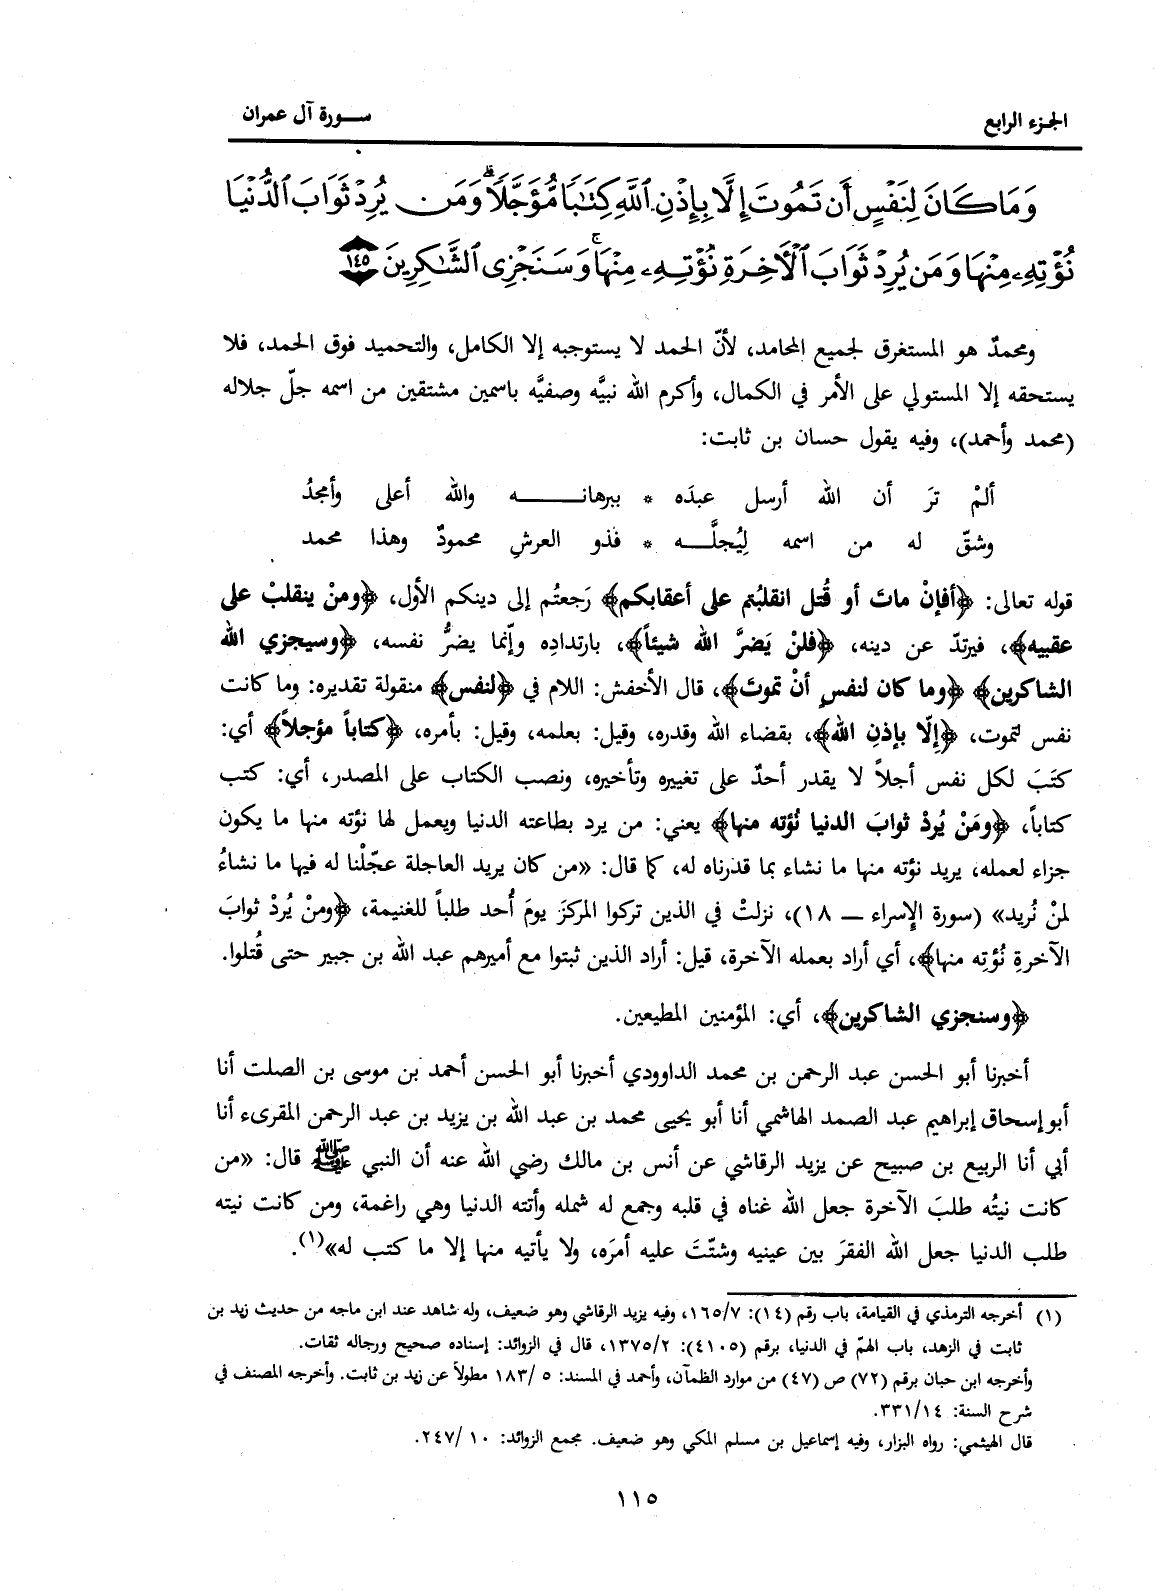 الجزء الرابع
سورة آل عمران
وَمَا كَانَ لِنَفْسٍ أَن تَمُوتَ إِلَّا بِإِذْنِ ٱللَّهِ كِتَٰبًا مُّؤَجَّلًا ۗ وَمَن يُرِدْ ثَوَابَ ٱلدُّنْيَا
نُؤْتِهِۦ مِنْهَا وَمَن يُرِدْ ثَوَابَ ٱلْأَخِرَةِ نُؤْتِهِۦ مِنْهَا ۚ وَسَنَجْزِى ٱلشَّٰكِرِينَ ١٤٥
ومحمدٌ هو المستغرق لجميع المحامد، لأنّ الحمد لا يستوجبه إلا الكامل، والتحميد فوق الحمد، فلا
يستحقه إلا المستولي على الأمر في الكمال، وأكرم الله نبيَّه وصفيَّه باسمين مشتقين من اسمه جلّ جلاله
(محمد وأحمد)، وفيه يقول حسان بن ثابت:
ألمْ ترَ أن الله أرسل عبدَه * ببرهانه والله أعلى وأمجدُ
وشقّ له من اسمه لِيُجلَّه * فذو العرشِ محمودٌ وهذا محمد
قوله تعالى: ﴿أفإنْ ماتَ أو قُتل انقلبُتم على أعقابكم﴾ رَجعتُم إلى دينكم الأول، ﴿ومنْ ينقلبْ على
عقبيه﴾، فيرتدّ عن دينه، ﴿فلنْ يَضرَّ الله شيئاً﴾، بارتدادِه وإنّما يضرُّ نفسه، ﴿وسيجزي الله
الشاكرين﴾ ﴿وما كان لنفسٍ أنْ تموتَ﴾، قال الأخفش: اللام في ﴿لنفس﴾ منقولة تقديره: وما كانت
نفس لتموت، ﴿إلّا بإذنِ الله﴾، بقضاء الله وقدره، وقيل: بعلمه، وقيل: بأمره، ﴿كتاباً مؤجلاً﴾ أي:
كتَبَ لكل نفس أجلاً لا يقدر أحدٌ على تغييره وتأخيره، ونصب الكتاب على المصدر، أي: كتب
كتاباً، ﴿ومَنْ يُردْ ثوابَ الدنيا نُؤته منها﴾ يعني: من يرد بطاعته الدنيا ويعمل لها نؤته منها ما يكون
جزاء لعمله، يريد نؤته منها ما نشاء بما قدرناه له، كما قال: «من كان يريد العاجلة عجّلْنا له فيها ما نشاءُ
لمنْ نُريد» (سورة الإسراء – ١٨)، نزلتْ في الذين تركوا المركزَ يومَ أُحد طلباً للغنيمة، ﴿ومنْ يُردْ ثوابَ
الآخرةِ نُؤتِه منها﴾، أي أراد بعمله الآخرة، قيل: أراد الذين ثبتوا مع أميرهم عبد الله بن جبير حتى قُتلوا.
﴿وسنجزي الشاكرين﴾، أي: المؤمنين المطيعين.
أخبرنا أبو الحسن عبد الرحمن بن محمد الداوودي أخبرنا أبو الحسن أحمد بن موسى بن الصلت أنا
أبو إسحاق إبراهيم عبد الصمد الهاشمي أنا أبو يحيى محمد بن عبد الله بن يزيد بن عبد الرحمن المقرىء أنا
أبي أنا الربيع بن صبيح عن يزيد الرقاشي عن أنس بن مالك رضي الله عنه أن النبي ﷺ قال: «من
كانت نيتُه طلبَ الآخرة جعل الله غناه في قلبه وجمع له شمله وأتته الدنيا وهي راغمة، ومن كانت نيته
طلب الدنيا جعل الله الفقرَ بين عينيه وشتّتَ عليه أمرَه، ولا يأتيه منها إلا ما كتب له»(١).
(١) أخرجه الترمذي في القيامة، باب رقم (١٤): ١٦٥/٧، وفيه يزيد الرقاشي وهو ضعيف، وله شاهد عند ابن ماجه من حديث زيد بن
ثابت في الزهد، باب الهمّ في الدنيا، برقم (٤١٠٥): ١٣٧٥/٢، قال في الزوائد: إسناده صحيح ورجاله ثقات.
وأخرجه ابن حبان برقم (٧٢) ص (٤٧) من موارد الظمآن، وأحمد في المسند: ١٨٣/٥ مطولاً عن زيد بن ثابت. وأخرجه المصنف في
شرح السنة: ٣٣١/١٤.
قال الهيثمي: رواه البزار، وفيه إسماعيل بن مسلم المكي وهو ضعيف. مجمع الزوائد: ٢٤٧/١٠.
١١٥